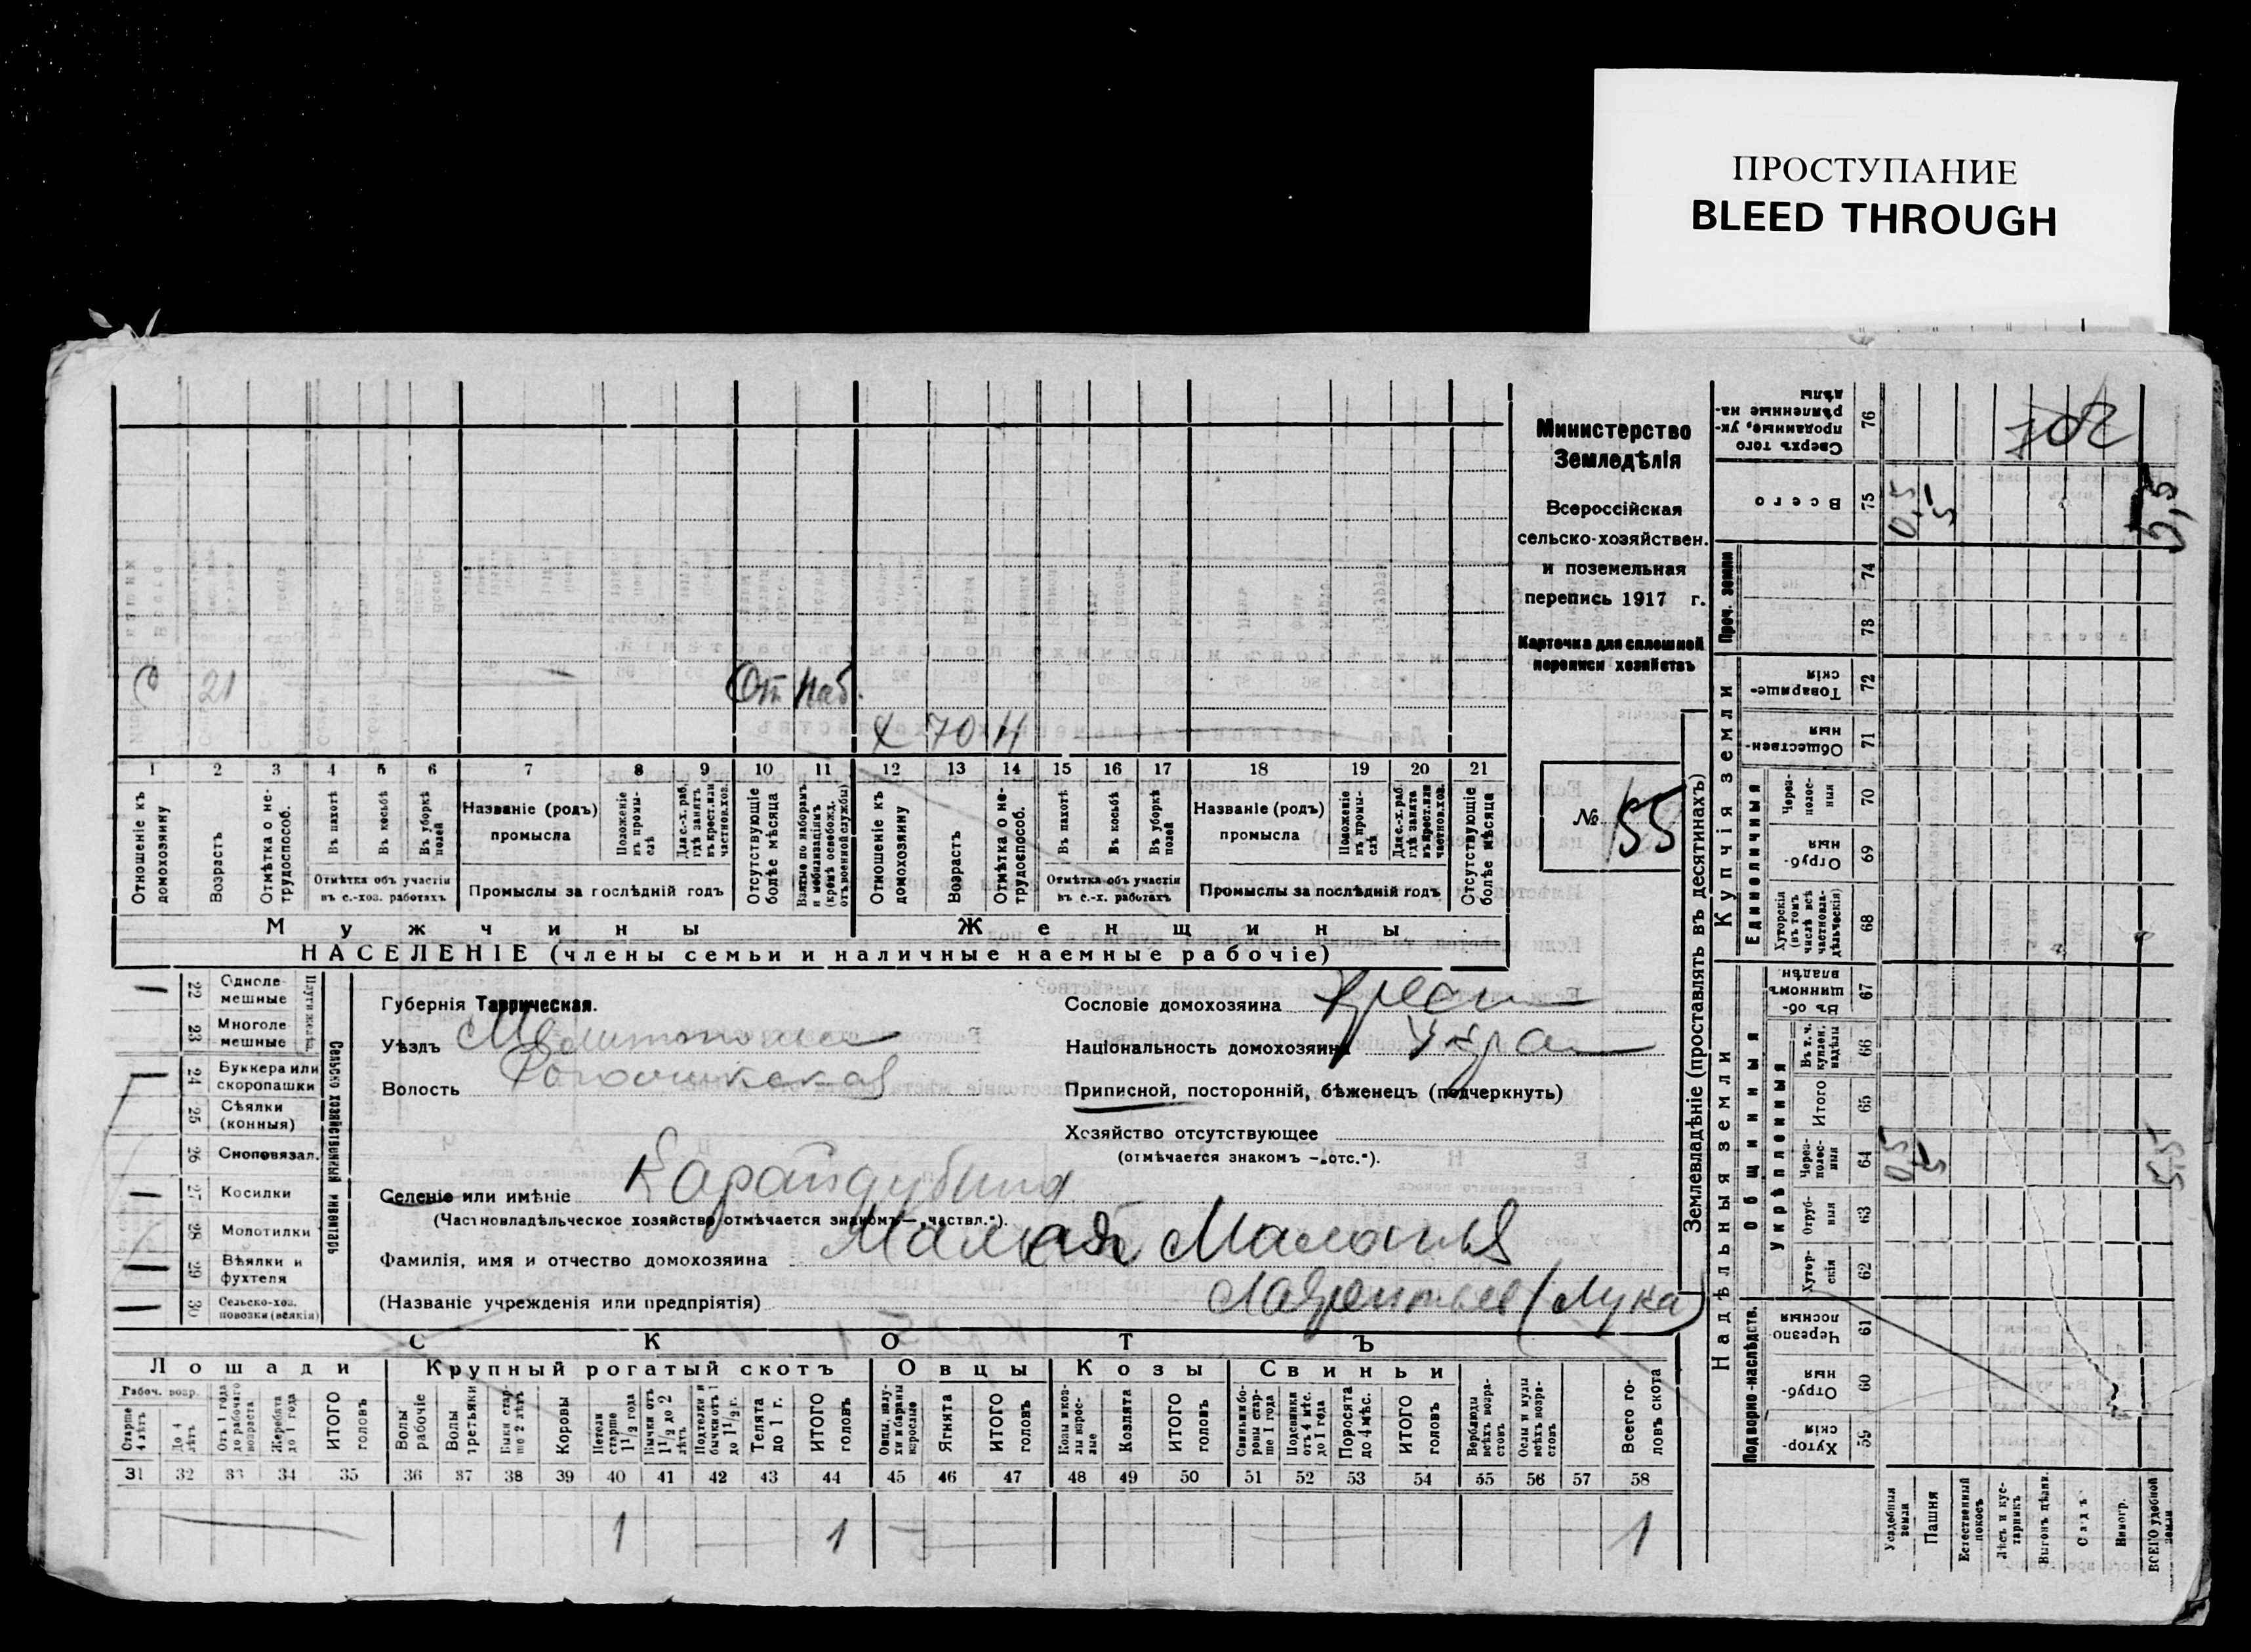 ПРОСТУПАНИЕ
BLEED THROUGH
Министерство
Земледѣлія
Всероссійская
сельско-хозяйствен.
и поземельная
перепись 1917 г.
Карточка для сплошной
переписи хозяйствъ
№ 55
С 21 От Наб.
Х 70 Н
1 2 3 4 5 6 7 8 9 10 11 12 13 14 15 16 17 18 19 20 21
Отношеніе къ домохозяину
Возрастъ
Отмѣтка о не-трудоспособ.
Въ пахотѣ
Въ косьбѣ
Въ уборкѣ полей
Отмѣтка объ участіи
въ с.-хоз. работахъ
Названіе (родъ)
промысла
Положеніе въ промы-слѣ
Для с.-х. раб. гдѣ занятъ въ крест. или частнов. хоз.
Промыслы за послѣдній годъ
Отсутствующіе болѣе мѣсяца
Взятые по наборамъ и мобилизаціямъ (кромѣ освобожд. отъ военной службы)
Отношеніе къ домохозяину
Возрастъ
Отмѣтка о не-трудоспособ.
Въ пахотѣ
Въ косьбѣ
Въ уборкѣ полей
Отмѣтка объ участіи
въ с.-х. работахъ
Названіе (родъ)
промысла
Положеніе въ промы-слѣ
Для с.-х. раб. гдѣ занята въ крест. или частнов. хоз.
Промыслы за послѣдній годъ
Отсутствующіе болѣе мѣсяца
Мужчины Женщины
НАСЕЛЕНІЕ (члены семьи и наличные наемные рабочіе)
Сельско хозяйственный инвентарь
22 Одноле-мешные
23 Многоле-мешные
24 Буккера или скоропашки
25 Сѣялки (конныя)
26 Сноповязал.
27 Косилки
28 Молотилки
29 Вѣялки и фухтеля
30 Сельско-хоз. повозки (всякія)
Губернія Таврическая.
Уѣздъ
Волость
Сословіе домохозяина Крест
Національность домохозяина Укра
Приписной, посторонній, бѣженецъ (подчеркнуть)
Хозяйство отсутствующее
(отмѣчается знакомъ —„отс.“).
Селеніе или имѣніе
(Частновладѣльческое хозяйство отмѣчается знакомъ —„частвл.“).
Фамилія, имя и отчество домохозяина
(Названіе учрежденія или предпріятія) (Лука)
СКОТЪ
Лошади Крупный рогатый скотъ Овцы Козы Свиньи
Рабоч. возр.
Старше 4 лѣтъ
До 4 лѣтъ
Отъ 1 года до рабочаго возраста
Жеребята до 1 года
ИТОГО головъ
Волы рабочіе
Волы третьяки
Быки стар-ше 2 лѣтъ
Коровы
Нетели старше 1 1/2 года
Бычки отъ 1 1/2 до 2 лѣтъ
Подтелки и бычки отъ 1 до 1 1/2 г.
Телята до 1 г.
ИТОГО головъ
Овцы, валу-хи и бараны взрослые
Ягнята
ИТОГО головъ
Козы и коз-лы взрос-лые
Козлята
ИТОГО головъ
Свиньи и бо-ровы стар-ше 1 года
Подсвинки отъ 4 мѣс. до 1 года
Поросята до 4 мѣс.
ИТОГО головъ
Верблюды всѣхъ возра-стовъ
Ослы и мулы всѣхъ возра-стовъ
Всего го-ловъ скота
31 32 33 34 35 36 37 38 39 40 41 42 43 44 45 46 47 48 49 50 51 52 53 54 55 56 57 58
1 1 1
Землевладѣніе (проставлять въ десятинахъ)
Надѣльныя земли
Купчія земли
Проч. земли
Подворно-наслѣдств.
Общинныя
Укрѣпленныя
Единоличныя
59 Хутор-скія
60 Отруб-ныя
61 Черезпо-лосныя
62 Хутор-скія
63 Отруб-ныя
64 Через-полос-ныя
65 Итого
66 Въ т. ч. куплен. надѣлы
67 Въ об-щинномъ владѣн.
68 Хуторскія (въ томъ числѣ всѣ частновла-дѣльческія)
69 Отруб-ныя
70 Через-полос-ныя
71 Обществен-ныя
72 Товарище-скія
73
74
75 Всего
76 Сверхъ того проданные, ук-рѣпленные на-дѣлы
0,5 5 5,5
0,5 5 5,5
Усадебныя земли
Пашня
Естественный покосъ
Лѣсъ и кус-тарникъ
Выгонъ цѣлин.
Садъ
Виногр.
ВСЕГО удобной земли